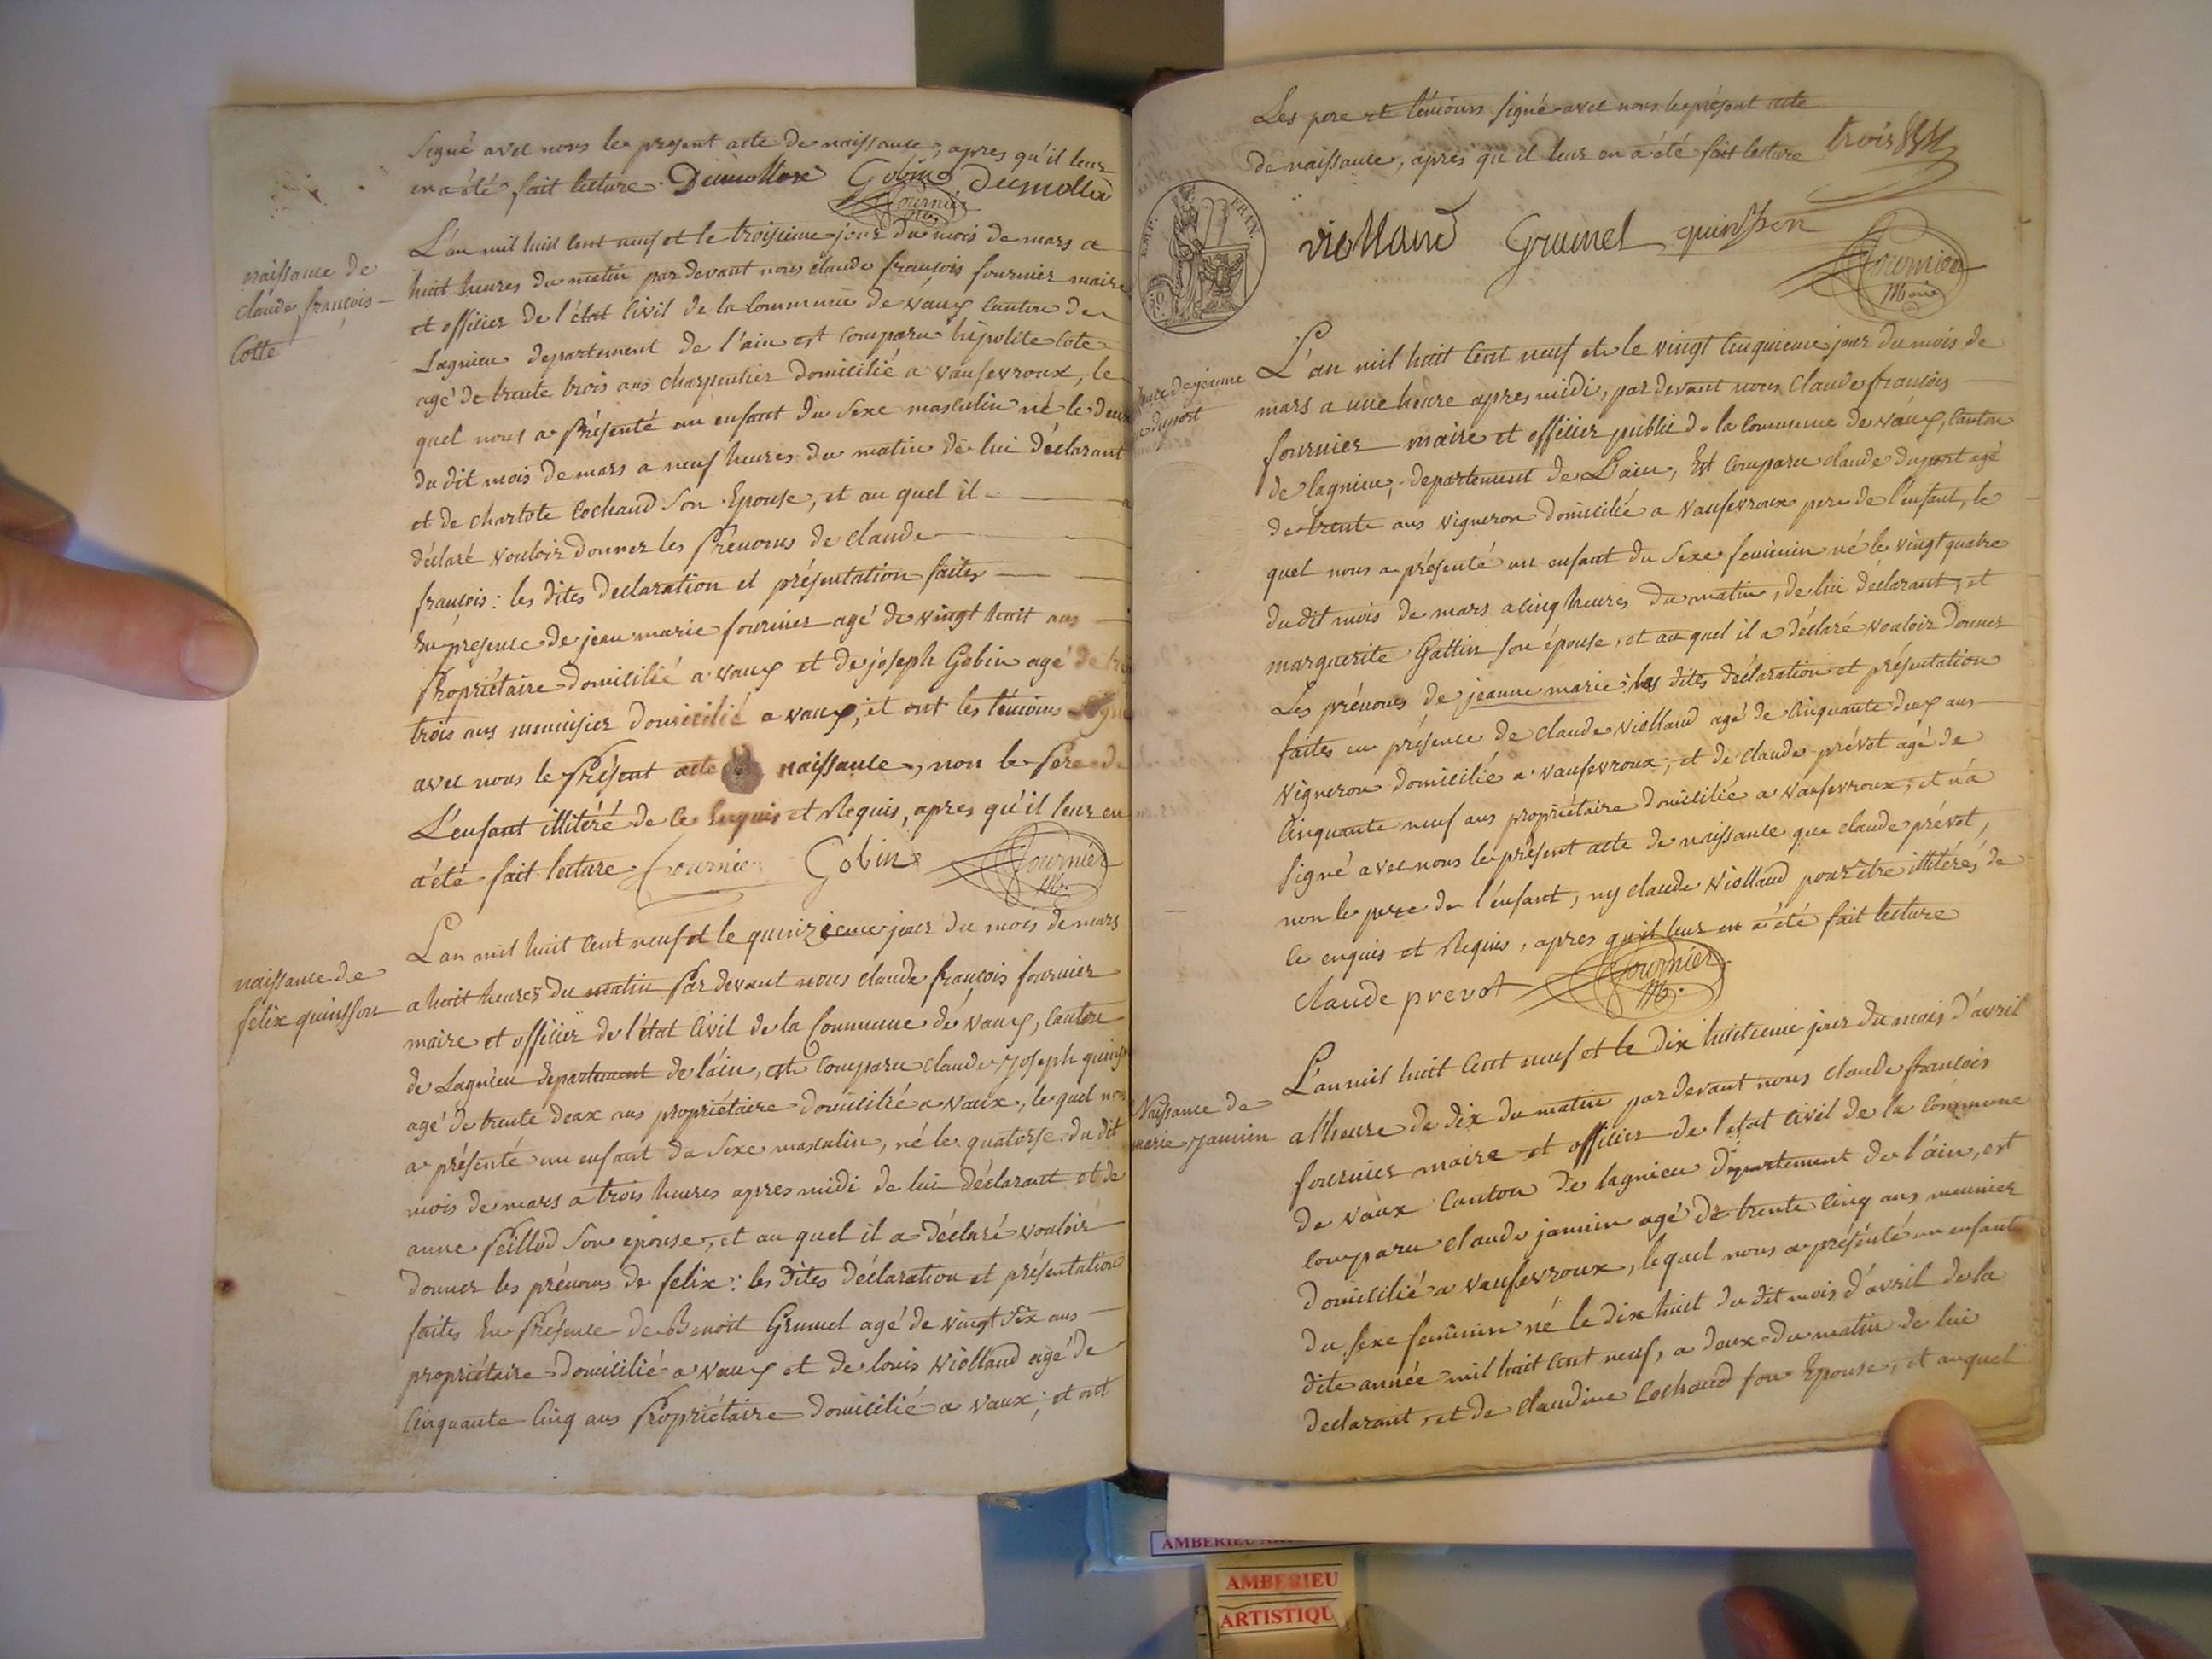 Signé avec nous le present acte de naissance, apres qu'il leur
en a été fait lecture Dumollard Gobin Dumollard
fournier
naissance de
claude françois
Cotte
L'an mil huit cent neuf et le troisieme jour du mois de mars a
huit heures du matin par devant nous claude françois fournier maire
et officier de l'état Civil de la Commune de vaux Canton de
Lagnieu departement de l'ain est comparu hipolite Cote
agé de trente trois ans charpentier domicilié a vaufevroux, le
quel nous a Présenté un enfant du Sexe masculin né le deux
du dit mois de mars a neuf heures du matin de lui déclarant
et de charlote Cochaud Son Epouse, et au quel il a
déclaré vouloir donner les Prénoms de claude
françois : les dites declaration et présentation faites
En presence de jean marie fournier agé de vingt huit ans
Propriétaire domicilié a vaux et de joseph Gobin agé de
trois ans menuisier domicilié a vaux, et ont les témoins Signé
avec nous le Présent acte naissance, non le Père de
L'enfant illitéré de ce Enquis et Requis, apres qu'il leur en
a été fait lecture fournier Gobin fournier
M.
naissance de
félix quinsson
L'an mil huit cent neuf et le quinzieme jour du mois de mars
a huit heures du matin Par devant nous claude françois fournier
maire et officier de l'état Civil de la Commune de vaux, Canton
de Lagnieu departement de l'ain, est comparu claude joseph
agé de trente deux ans propriétaire domicilié a vaux, le quel nous
a présenté un enfant du Sexe masculin, né le quatorse du dit
mois de mars a trois heures apres midi de lui déclarant et de
anne Peillod Son epouse, et au quel il a déclaré vouloir
donner les prénoms de felix : les dites déclaration et présentation
faites En Présence de Benoit Grumel agé de vingt six ans
propriétaire domicilié a vaux et de louis violland agé de
Cinquante Cinq ans Propriétaire domicilié a vaux ; et ont
Les pere et témoins signé avec nous le présent acte
de naissance, apres qu'il leur en a été fait lecture trois
EMP. FRAN.
50
C.
violland Grumel quinsson
fournier
Maire
jeanne
duport
L'an mil huit Cent neuf et le vingt Cinquieme jour du mois de
mars a une heure apres midi, par devant nous Claude françois
fournier maire et officier public de la Commune de vaux, Canton
de lagnieu, departement de L'ain, Est comparu claude duport agé
de trente ans vigneron domicilié a vaufevroux pere de l'enfant, le
quel nous a présenté un enfant du Sexe feminin né le vingt quatre
du dit mois de mars a Cinq heures du matin, de lui déclarant, et
marguerite Gattin son épouse, et au quel il a déclaré vouloir donner
Les prénoms de jeanne marie : les dites déclaration et présentation
faites en présence de claude violland agé de Cinquante deux ans
vigneron domicilié a vaufevroux, et de claude prévot agé de
Cinquante neuf ans propriétaire domicilié a vaufevroux, et n'a
signé avec nous le présent acte de naissance que claude prévot,
non le pere de l'enfant, ny claude violland pour etre illitérés de
ce enquis et Requis, apres qu'il leur en a été fait lecture
claude prevot fournier
M.
Naissance de
marie jannin
L'an mil huit Cent neuf et le dix huitieme jour du mois d'avril
a l'heure de dix du matin par devant nous claude françois
fournier maire et officier de l'etat civil de la Commune
de vaux Canton de lagnieu département de l'ain, est
comparu claude janin agé de trente Cinq ans meunier
domicilié a vaufevroux, le quel nous a présenté un enfant
du sexe feminin né le dix huit du dit mois d'avril de la
dite année mil huit cent neuf, a deux du matin de lui
declarant, et de claudine Cochaud son Epouse, et auquel
AMBERIEU
AMBERIEU
ARTISTIQU